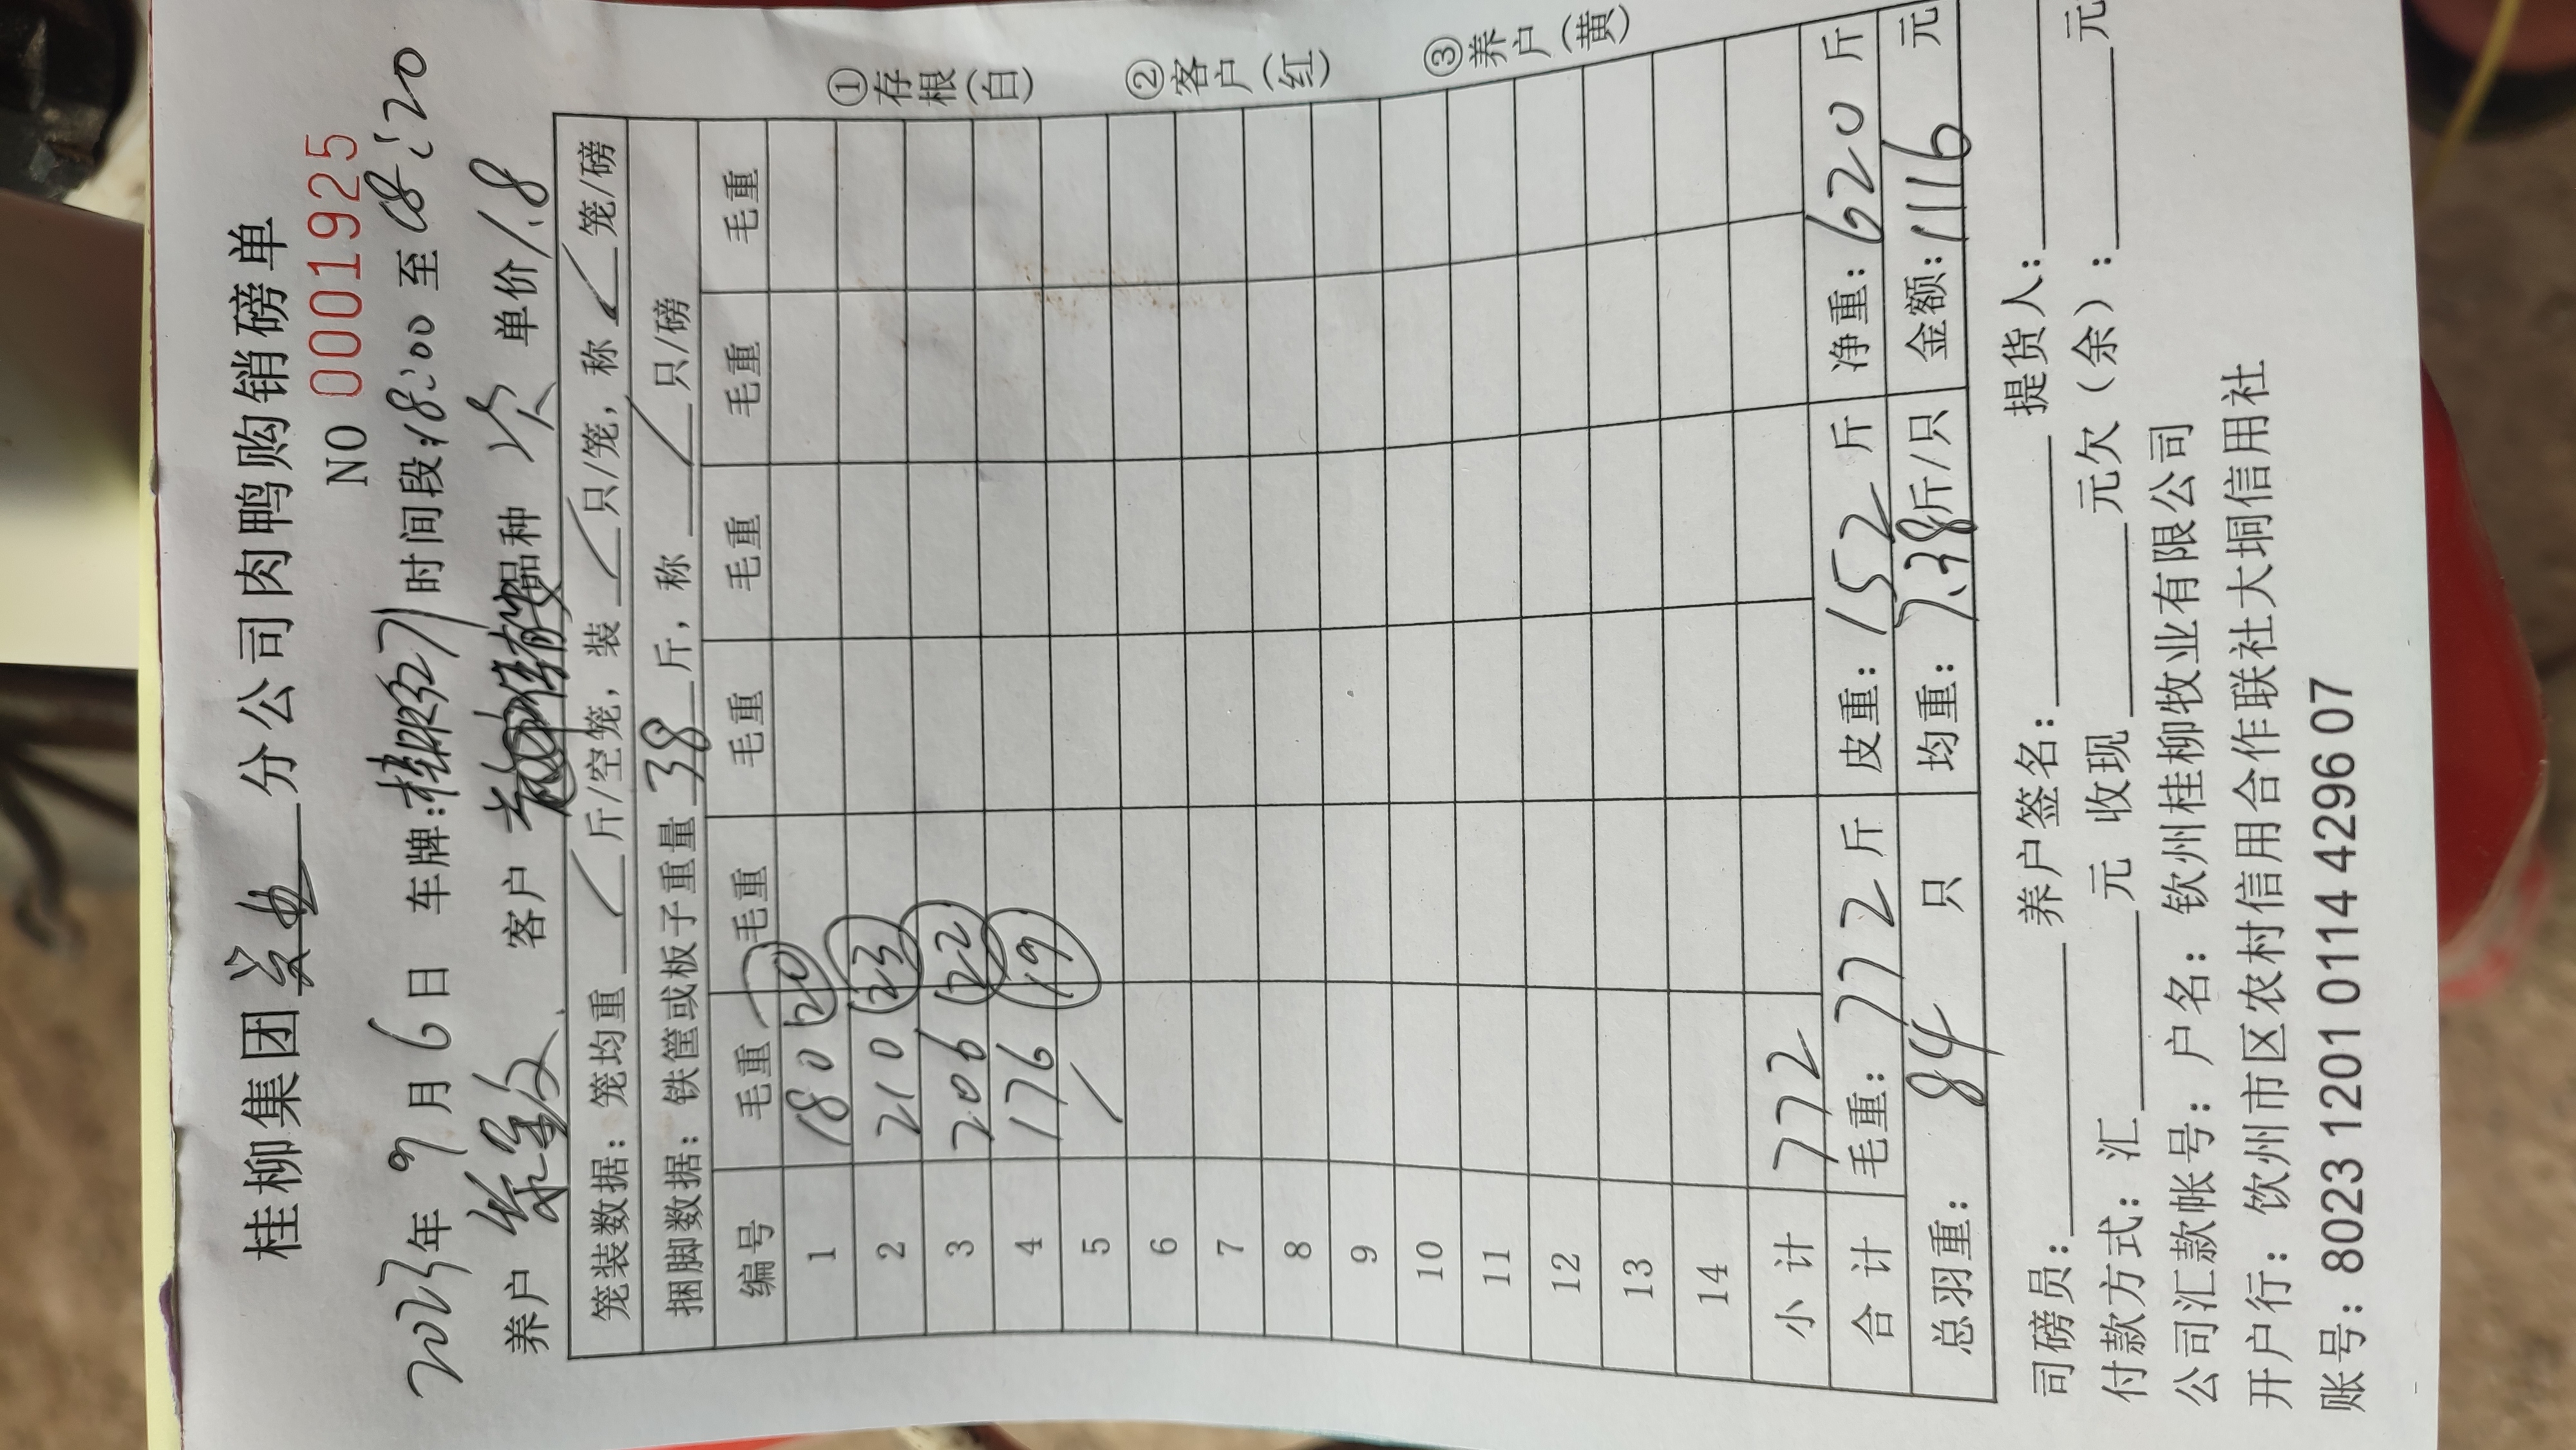 桂柳集团 分公司肉鸭购销磅单
NO 0001925
2023年 9月 6日 车牌: 时间段:18:00 至 18:20
养户 客户 品种 次 单价 1.8
笼装数据：笼均重 斤/空笼，装 只/笼，称 笼/磅
捆脚数据：铁筐或板子重量 38 斤，称 只/磅
编号 毛重 毛重 毛重 毛重 毛重 毛重
1 180 20
2 210 23
3 206 22
4 176 19
5
6
7
8
9
10
11
12
13
14
小 计 772
合 计 毛重：772 斤 皮重：152 斤 净重：620 斤
总羽重： 84 只 均重：7.38 斤/只 金额：1116 元
①存根(白) ②客户(红) ③养户(黄)
司磅员： 养户签名： 提货人：
付款方式：汇 元 收现 元欠（余）： 元
公司汇款帐号：户名：钦州桂柳牧业有限公司
开户行：钦州市区农村信用合作联社大垌信用社
账号：8023 1201 0114 4296 07